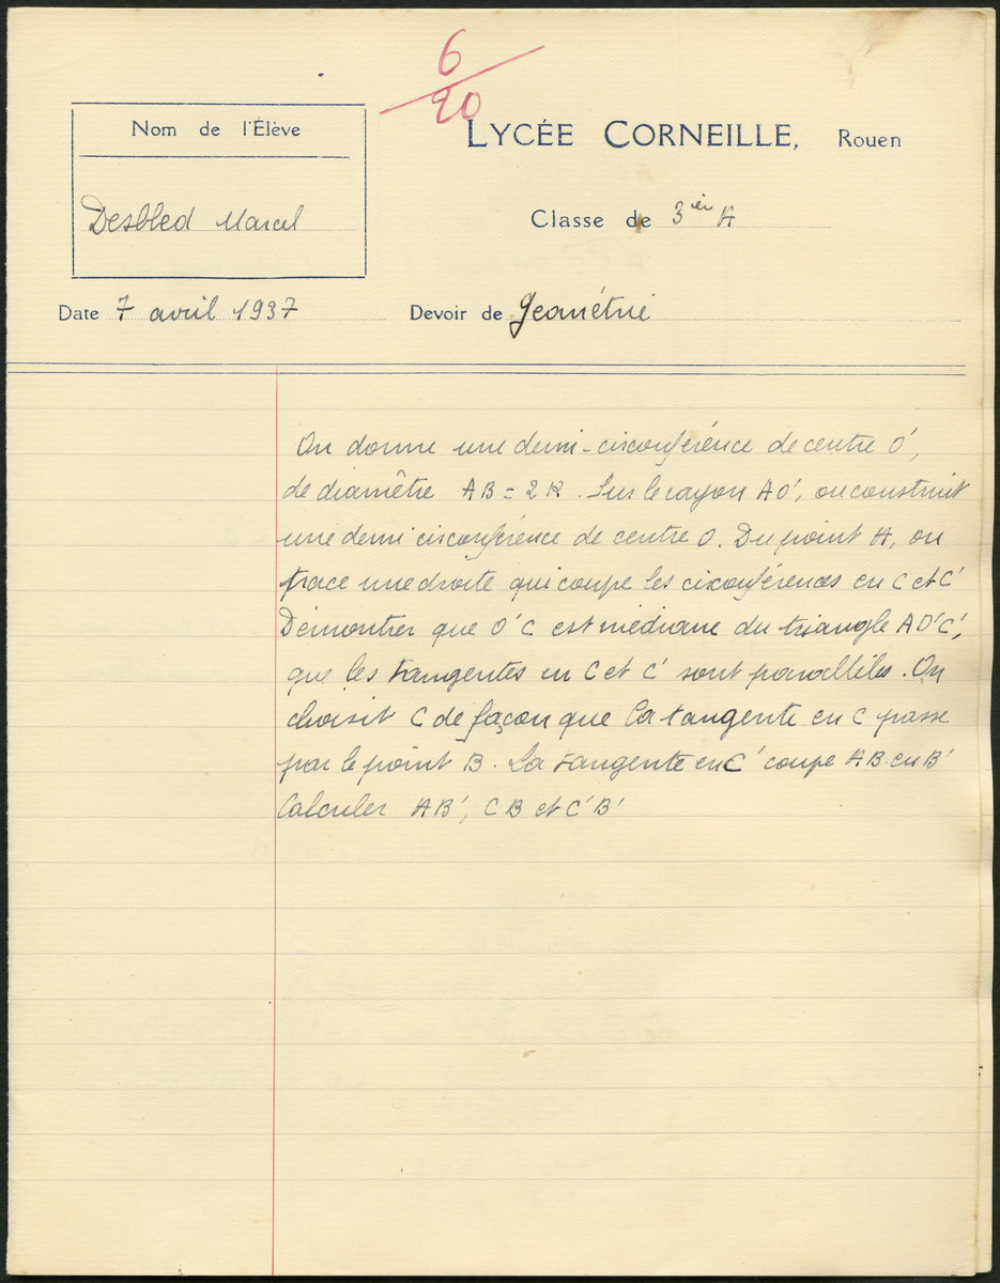 6/20
Nom de l'Élève
LYCÉE CORNEILLE, Rouen
Desbled Marcel
Classe de 3ièr A
Date 7 avril 1937
Devoir de Géométrie
On donne une demi-circonférence de centre O',
de diamêtre AB = 2R. Sur le rayon AO', on construit
une demi circonférence de centre O. Du point A, on
trace une droite qui coupe les circonférences en C et C'
Démontrer que O'C est médiane du triangle AO'C',
que les tangentes en C et C' sont parallèles. On
choisit C de façon que la tangente en C passe
par le point B. La tangente en C' coupe AB en B'
Calculer AB', CB et C'B'